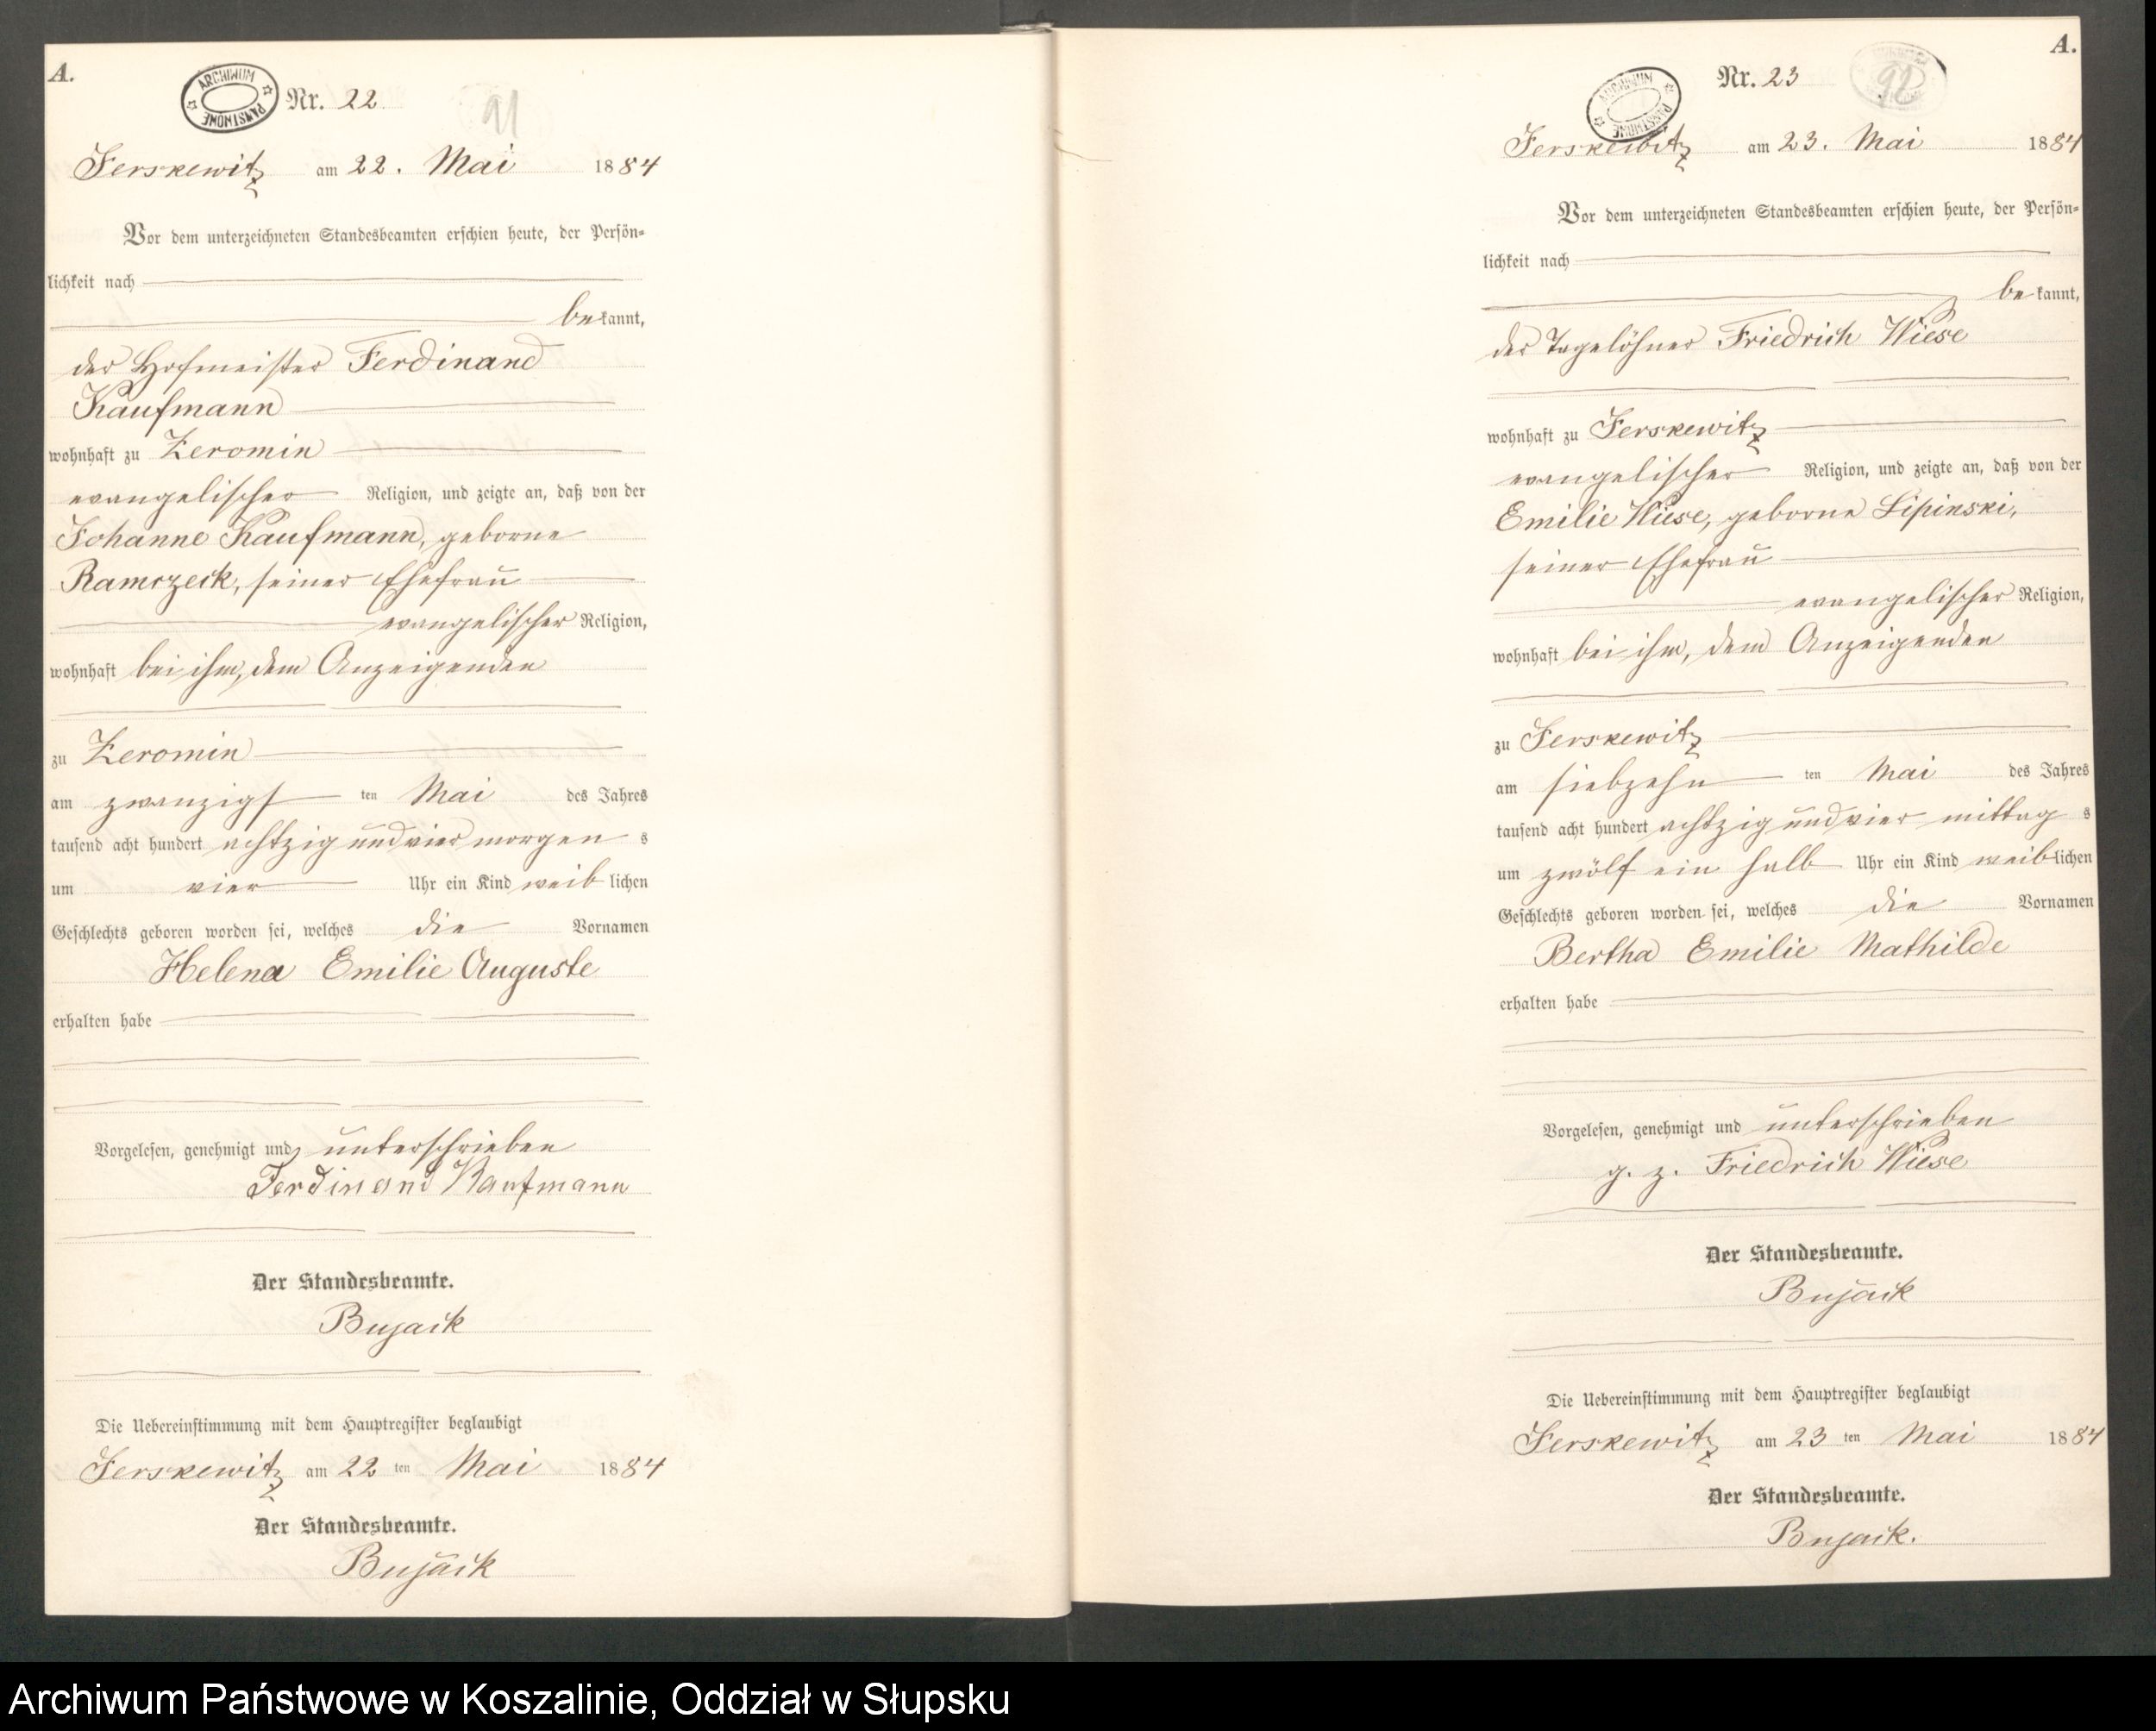 A.
ARCHIWUM PAŃSTWOWE
Nr. 22
91
Jerskewitz am 22. Mai 1884
Vor dem unterzeichneten Standesbeamten erschien heute, der Persön=
lichkeit nach
bekannt,
der Hofmeister Ferdinand
Kaufmann
wohnhaft zu Zeromin
evangelischer Religion, und zeigte an, daß von der
Johanne Kaufmann, geborne
Ramczeck, seiner Ehefrau
evangelischer Religion,
wohnhaft bei ihm, dem Anzeigenden
zu Zeromin
am zwanzigsten Mai des Jahres
tausend acht hundert achtzig und vier morgens
um vier Uhr ein Kind weiblichen
Geschlechts geboren worden sei, welches die Vornamen
Helena Emilie Auguste
erhalten habe
Vorgelesen, genehmigt und unterschrieben
Ferdinand Kaufmann
Der Standesbeamte.
Bujack
Die Uebereinstimmung mit dem Hauptregister beglaubigt
Jerskewitz am 22 ten Mai 1884
Der Standesbeamte.
Bujack
A.
ARCHIWUM PAŃSTWOWE
Nr. 23
92
Jerskewitz am 23. Mai 1884
Vor dem unterzeichneten Standesbeamten erschien heute, der Persön=
lichkeit nach
bekannt,
der Tagelöhner Friedrich Wiese
wohnhaft zu Jerskewitz
evangelischer Religion, und zeigte an, daß von der
Emilie Wiese, geborne Lipinski,
seiner Ehefrau
evangelischer Religion,
wohnhaft bei ihm, dem Anzeigenden
zu Jerskewitz
am siebzehn ten Mai des Jahres
tausend acht hundert achtzig und vier mittags
um zwölf ein halb Uhr ein Kind weiblichen
Geschlechts geboren worden sei, welches die Vornamen
Bertha Emilie Mathilde
erhalten habe
Vorgelesen, genehmigt und unterschrieben
g. z. Friedrich Wiese
Der Standesbeamte.
Bujack
Die Uebereinstimmung mit dem Hauptregister beglaubigt
Jerskewitz am 23 ten Mai 1884
Der Standesbeamte.
Bujack.
Archiwum Państwowe w Koszalinie, Oddział w Słupsku